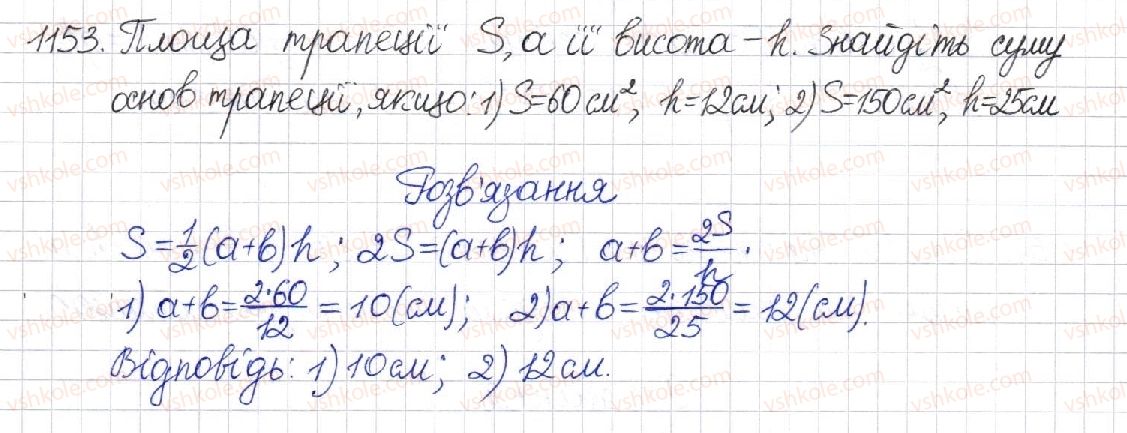 1153. Площа трапеції S, а її висота – h. Знайдіть суму
основ трапеції, якщо: 1) S=60см², h=12см; 2) S=150см², h=25см
Розв'язання
S=\frac{1}{2}(a+b)h; 2S=(a+b)h; a+b=\frac{2S}{h}.
1) a+b=\frac{2·60}{12}=10(см); 2) a+b=\frac{2·150}{25}=12(см).
Відповідь: 1) 10см; 2) 12см.